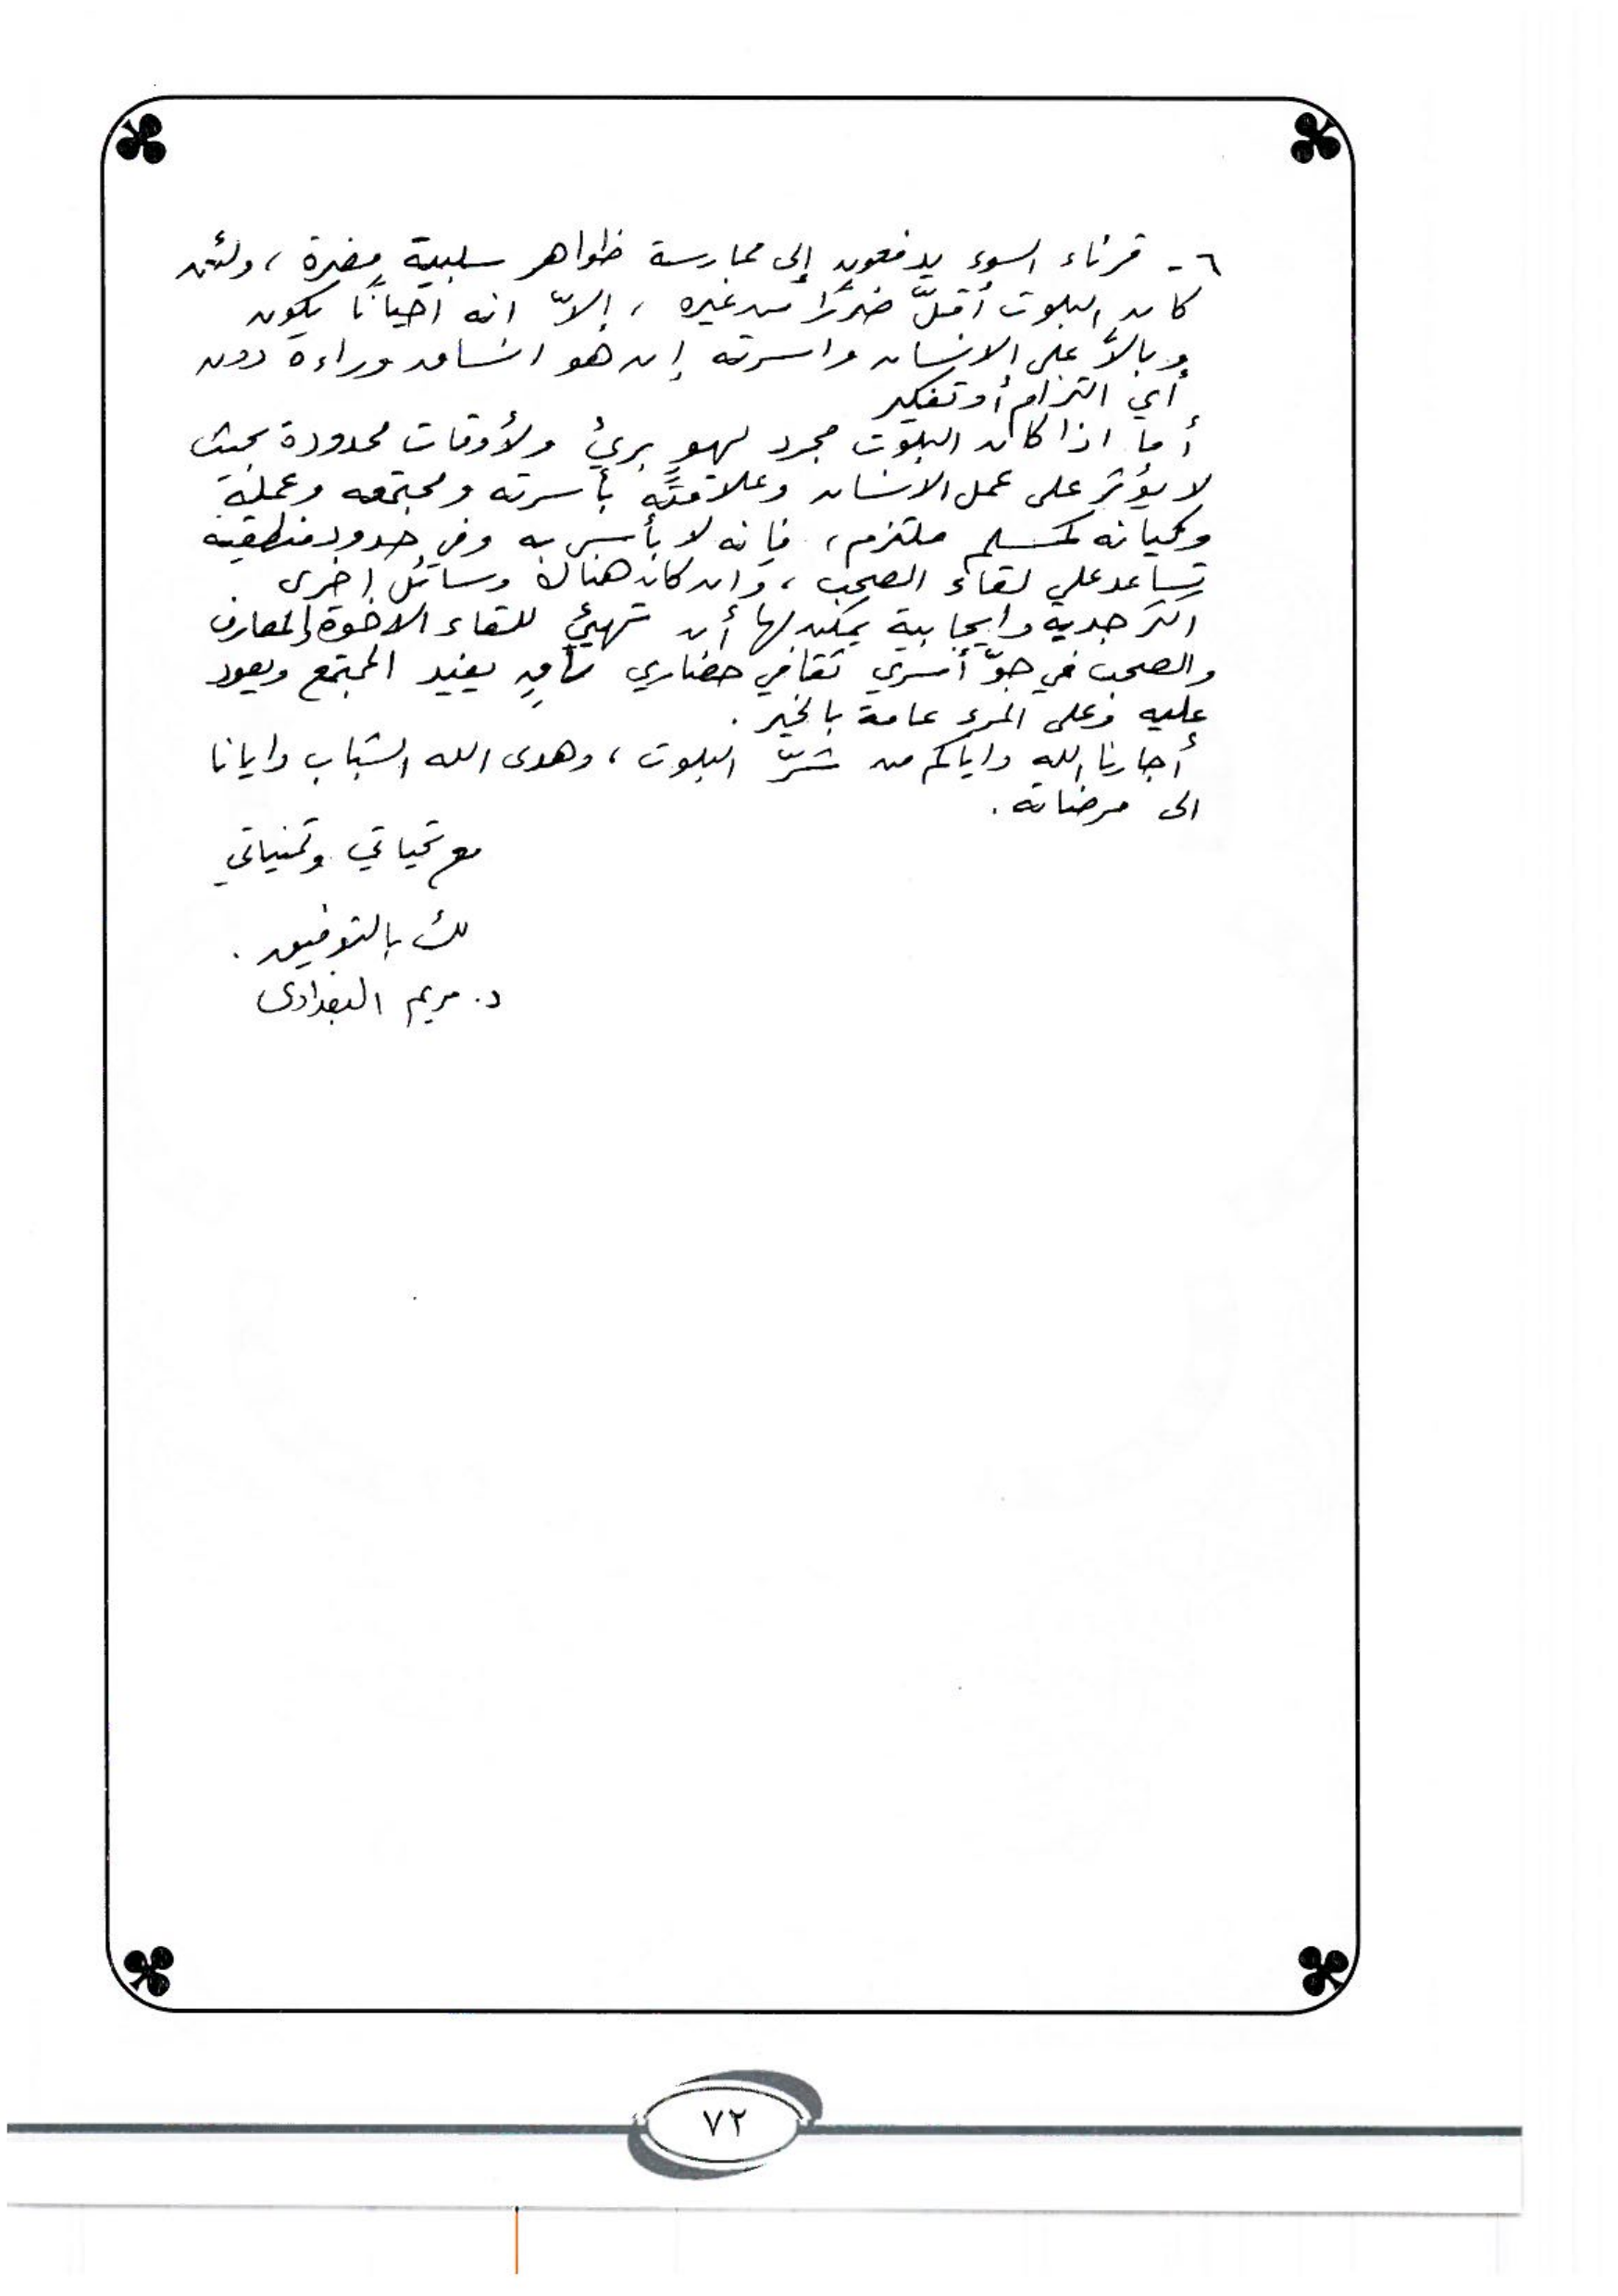 ٦- قرناء السوء يدفعون إلى ممارسة ظواهر سلبية مضرة ، ولئن
كان البلوت أقلّ ضررًا من غيره ، إلاّ انه احيانًا يكون
وبالاً على الانسان واسرته إن هو انساق وراءه دون
أي التزام أو تفكير
أما اذا كان البلوت مجرد لهوٍ بريئ ولأوقات محدودة بحيث
لا يؤثر على عمل الانسان وعلاقته بأسرته ومجتمعه وعمله
وكيانه كمسلم ملتزم ، فإنه لا بأس به وفي حدود منطقية
تساعد على لقاء الصحب ، وان كان هناك وسائل اخرى
اكثر جدية وايجابية يمكن لها أن تهيئ للقاء الاخوة والمعارف
والصحب في جوّ أسري ثقافي حضاري يفيد المجتمع ويعود
عليه وعلى المرء عامة بالخير .
أجارنا الله واياكم من شرّ البلوت ، وهدى الله الشباب وايانا
الى مرضاته .
مع تحياتي وتمنياتي
لك بالتوفيق .
د. مريم البغدادى
٧٢